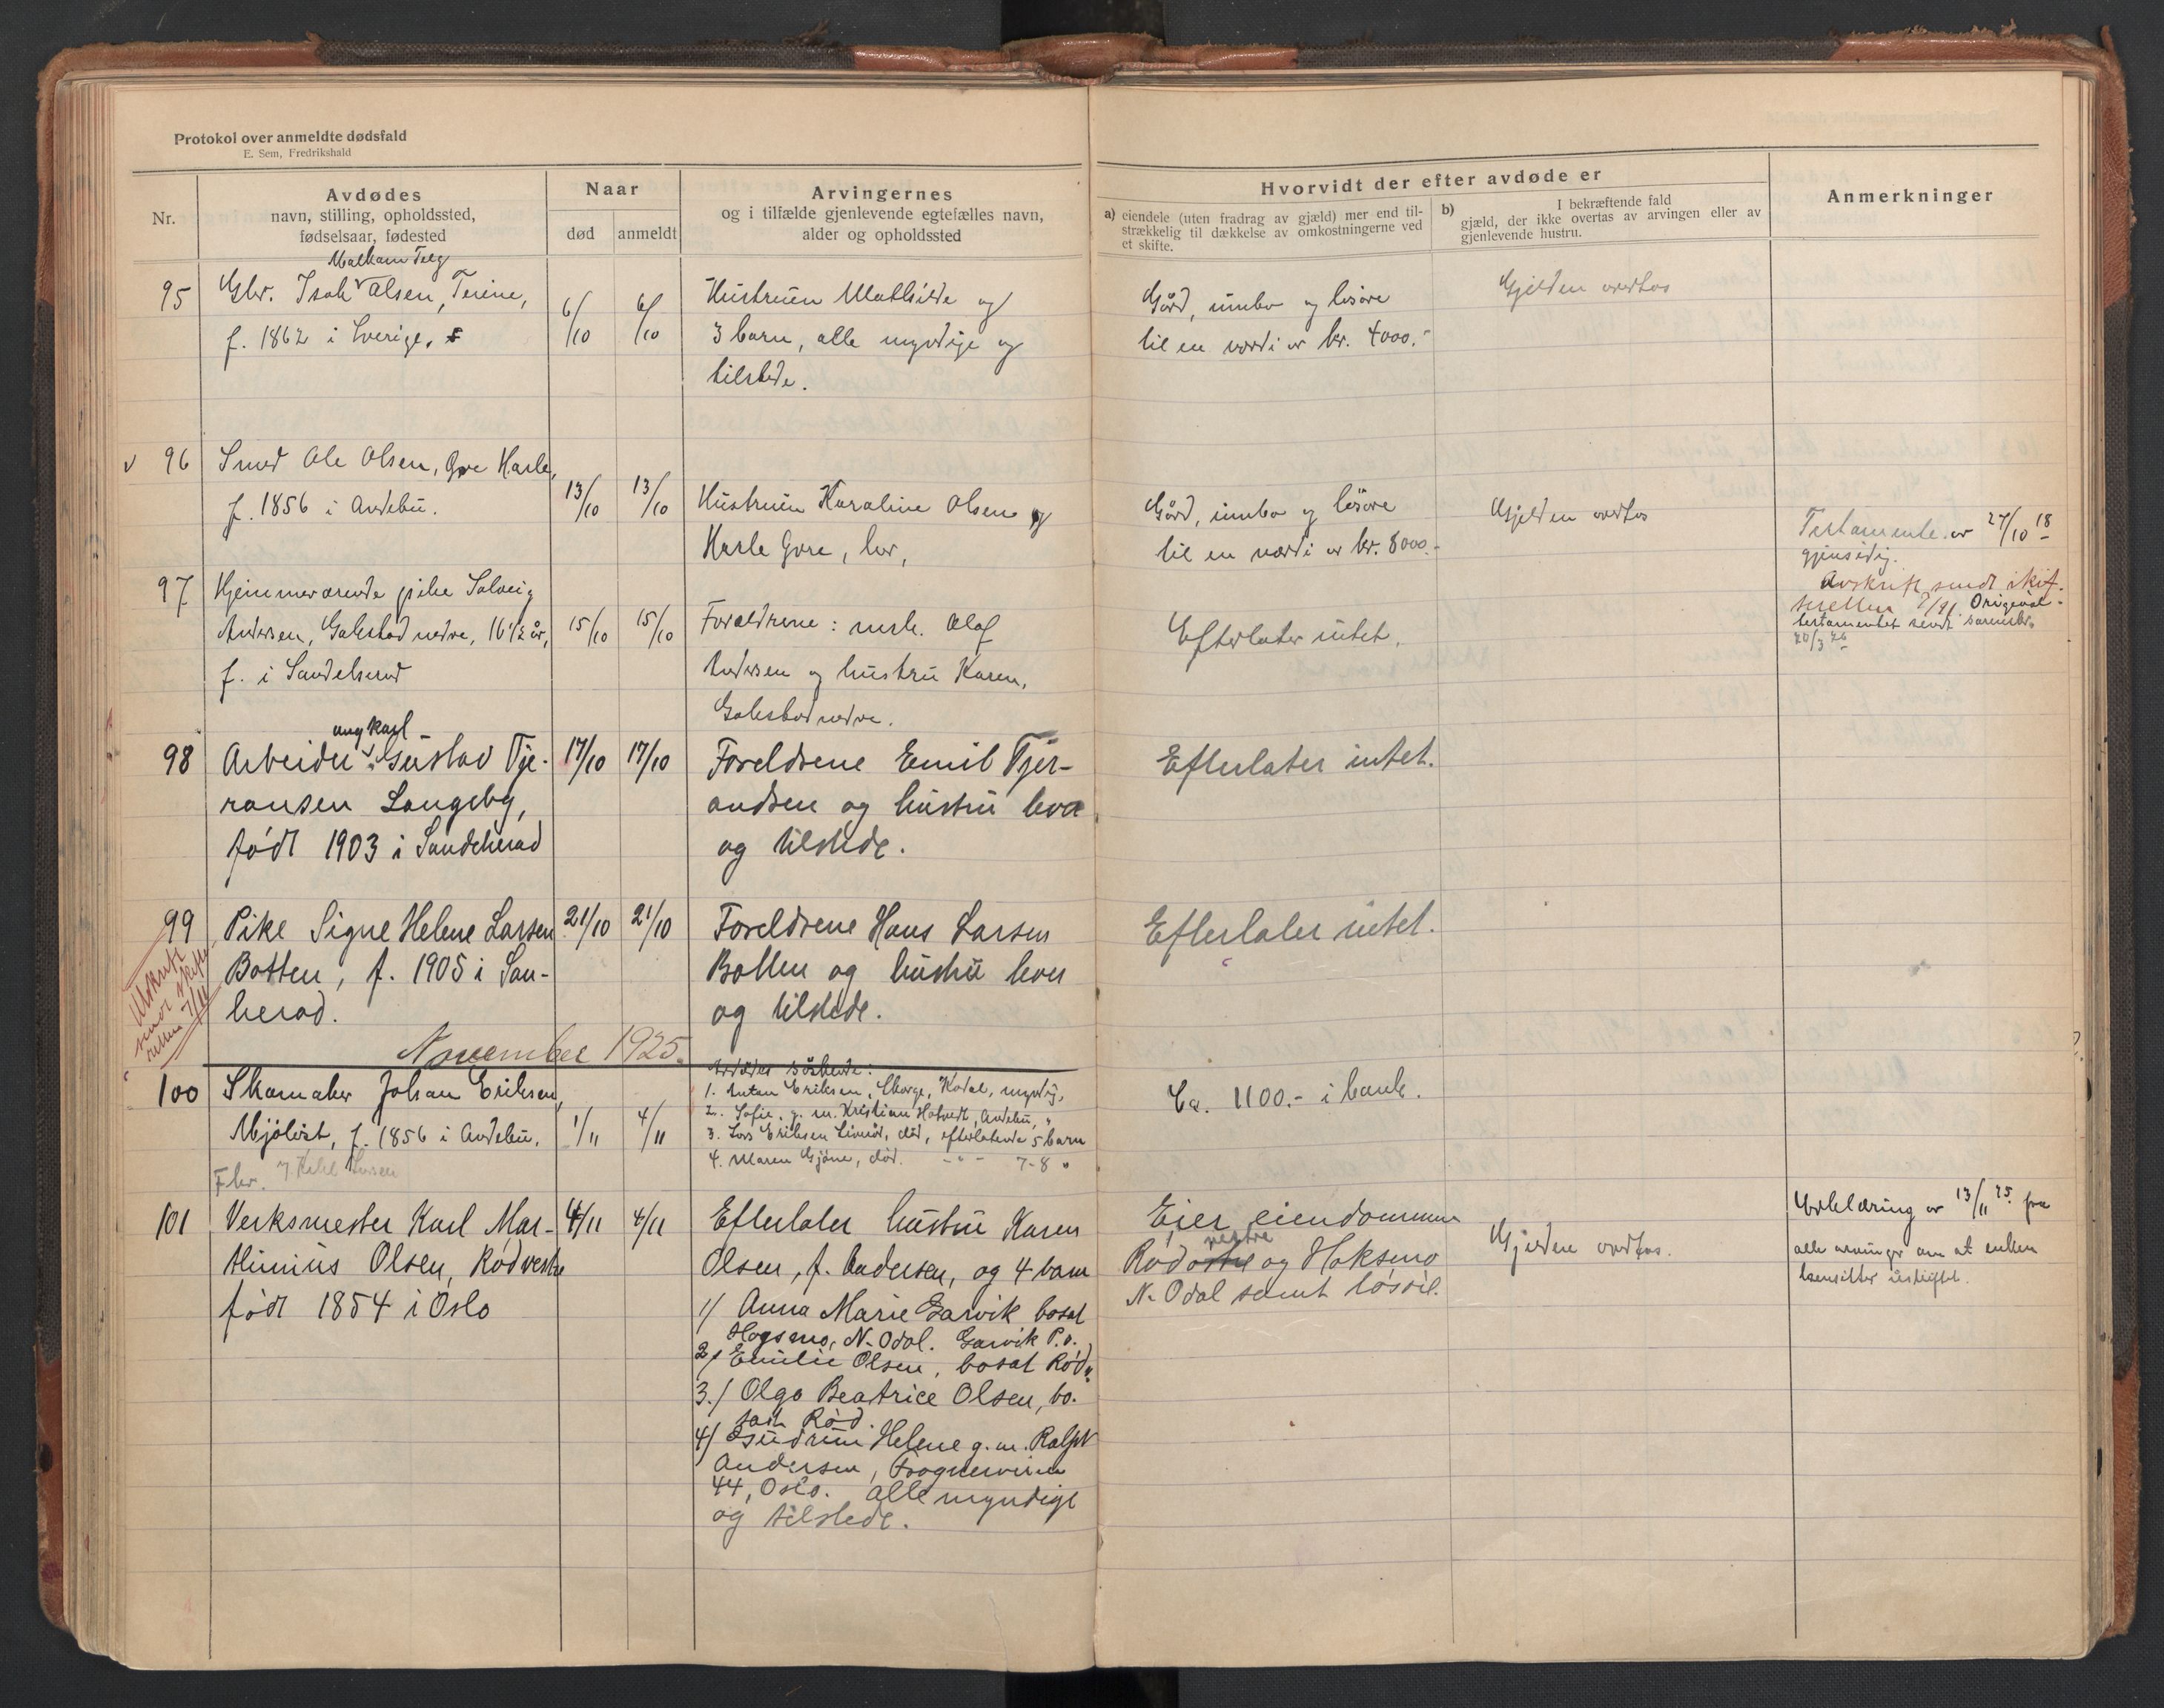 Protokol over anmeldte dødsfald
E. Sem, Fredrikshald
Nr.
Avdødes
navn, stilling, opholdssted,
fødselsaar, fødested
Naar
død
anmeldt
Arvingernes
og i tilfælde gjenlevende egtefælles navn,
alder og opholdssted
Hvorvidt der efter avdøde er
a) eiendele (uten fradrag av gjæld) mer end til-
strækkelig til dækkelse av omkostningerne ved
et skifte.
b) I bekræftende fald
gjæld, der ikke overtas av arvingen eller av
gjenlevende hustru.
Anmerkninger
95
Gbr. Isak Olsen,
f. 1862 i Sverige,
6/10
6/10
Hustruen Mathilde og
3 barn, alle myndige og
tilstede.
Gård, innbo og løsøre
til en værdi av kr. 4000.-
Gjelden overtas
96
Smed Ole Olsen, Gre Hasle,
f. 1856 i Andebu.
13/10
13/10
Hustruen Karoline Olsen og
Hasle Gore, lev,
Gård, innbo og løsøre
til en værdi av kr. 8000.-
Gjelden overtas
Testamente av 27/10 18
gjensidig.
Avskrift sendt skif-
Original-
testamentet sendt
20/3 26
97
Hjemmeværende pike Solveig
Andersen, Golestad nedre, 16 1/2 år,
f. i Sandeherad
15/10
15/10
Foreldrene: Olaf
Andersen og hustru Karen,
Golestad nedre.
Efterlater intet.
98
ungkarl
Arbeider Gustav Tje-
ransen Langeby,
født 1903 i Sandeherad
17/10
17/10
Foreldrene Emil Tjer-
andsen og hustru leva
og tilstede.
Efterlater intet.
99
Utskrift
sendt skifte-
retten 7/11
Pike Signe Helene Larsen
Botten, f. 1905 i San-
herad.
21/10
21/10
Foreldrene Hans Larsen
Botten og hustru lever
og tilstede.
Efterlater intet.
November 1925.
100
Skomaker Johan Eriksen,
Mjølöst, f. 1856 i Andebu.
1/11
4/11
Avdødes söskende:
1. Anton Eriksen, Skorge, Kodal, myndig,
2. Sofie, g. m. Kristian Hotvedt, Andebu, "
3. Lars Eriksen död, efterlatende 5 barn
4. Maren Gjöne, död. - " - 7-8 "
Ca. 1100.- i bank.
101
Fhv.
Verksmester Karl Mar-
thinius Olsen, Rød vestre
født 1854 i Oslo
4/11
4/11
Efterlater hustru Karen
Olsen, f. Andersen, og 4 barn
1/ Anna Marie Garvik bosat
Hogsmo, N-Odal. Garvik P.o.
2/ Emilie Olsen, bosat Rød,
3./ Olga Beatrice Olsen, bo-
satt Rød.
4/ Gudrun Helene g. m. Ralph
Andersen, Frognerveien
44, Oslo. alle myndige
og tilstede.
Eier eiendommen
vestre
Rød og Hoksmo
N. Odal samt løsøre.
Gjelden overtas.
Erklæring av 13/11 25 fra
alle arvinger om at enken
hensitter i uskiftet.